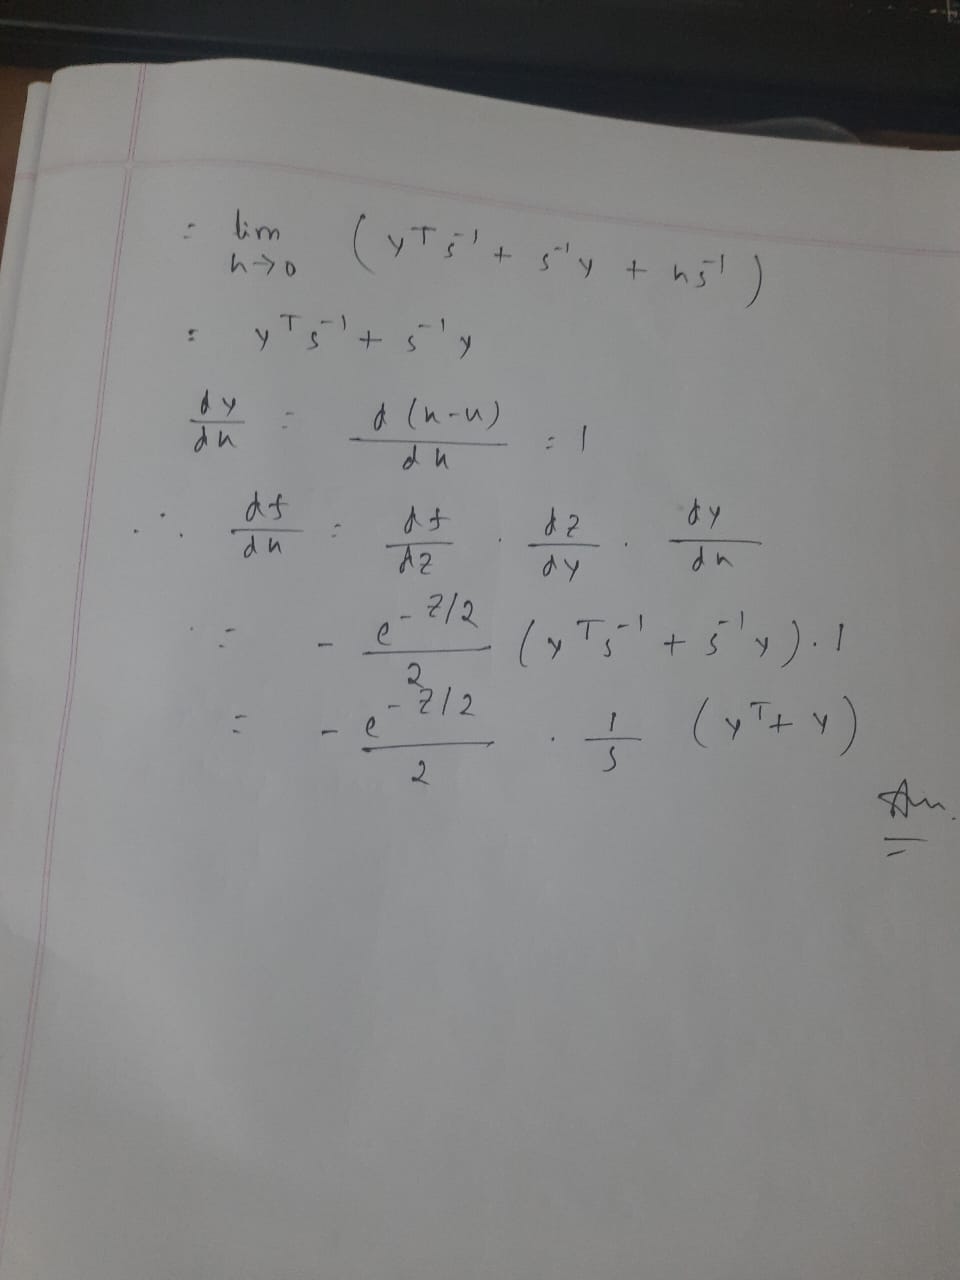 = lim (yᵀs⁻¹ + s⁻¹y + hs⁻¹)
h→0
= yᵀs⁻¹ + s⁻¹y
dy/dx = d(x-u)/dx = 1
∴ df/dx = df/dz . dz/dy . dy/dx
= - e^(-z/2)/2 (yᵀs⁻¹ + s⁻¹y) . 1
= - e^(-z/2)/2 . 1/s (yᵀ + y)
Ans.